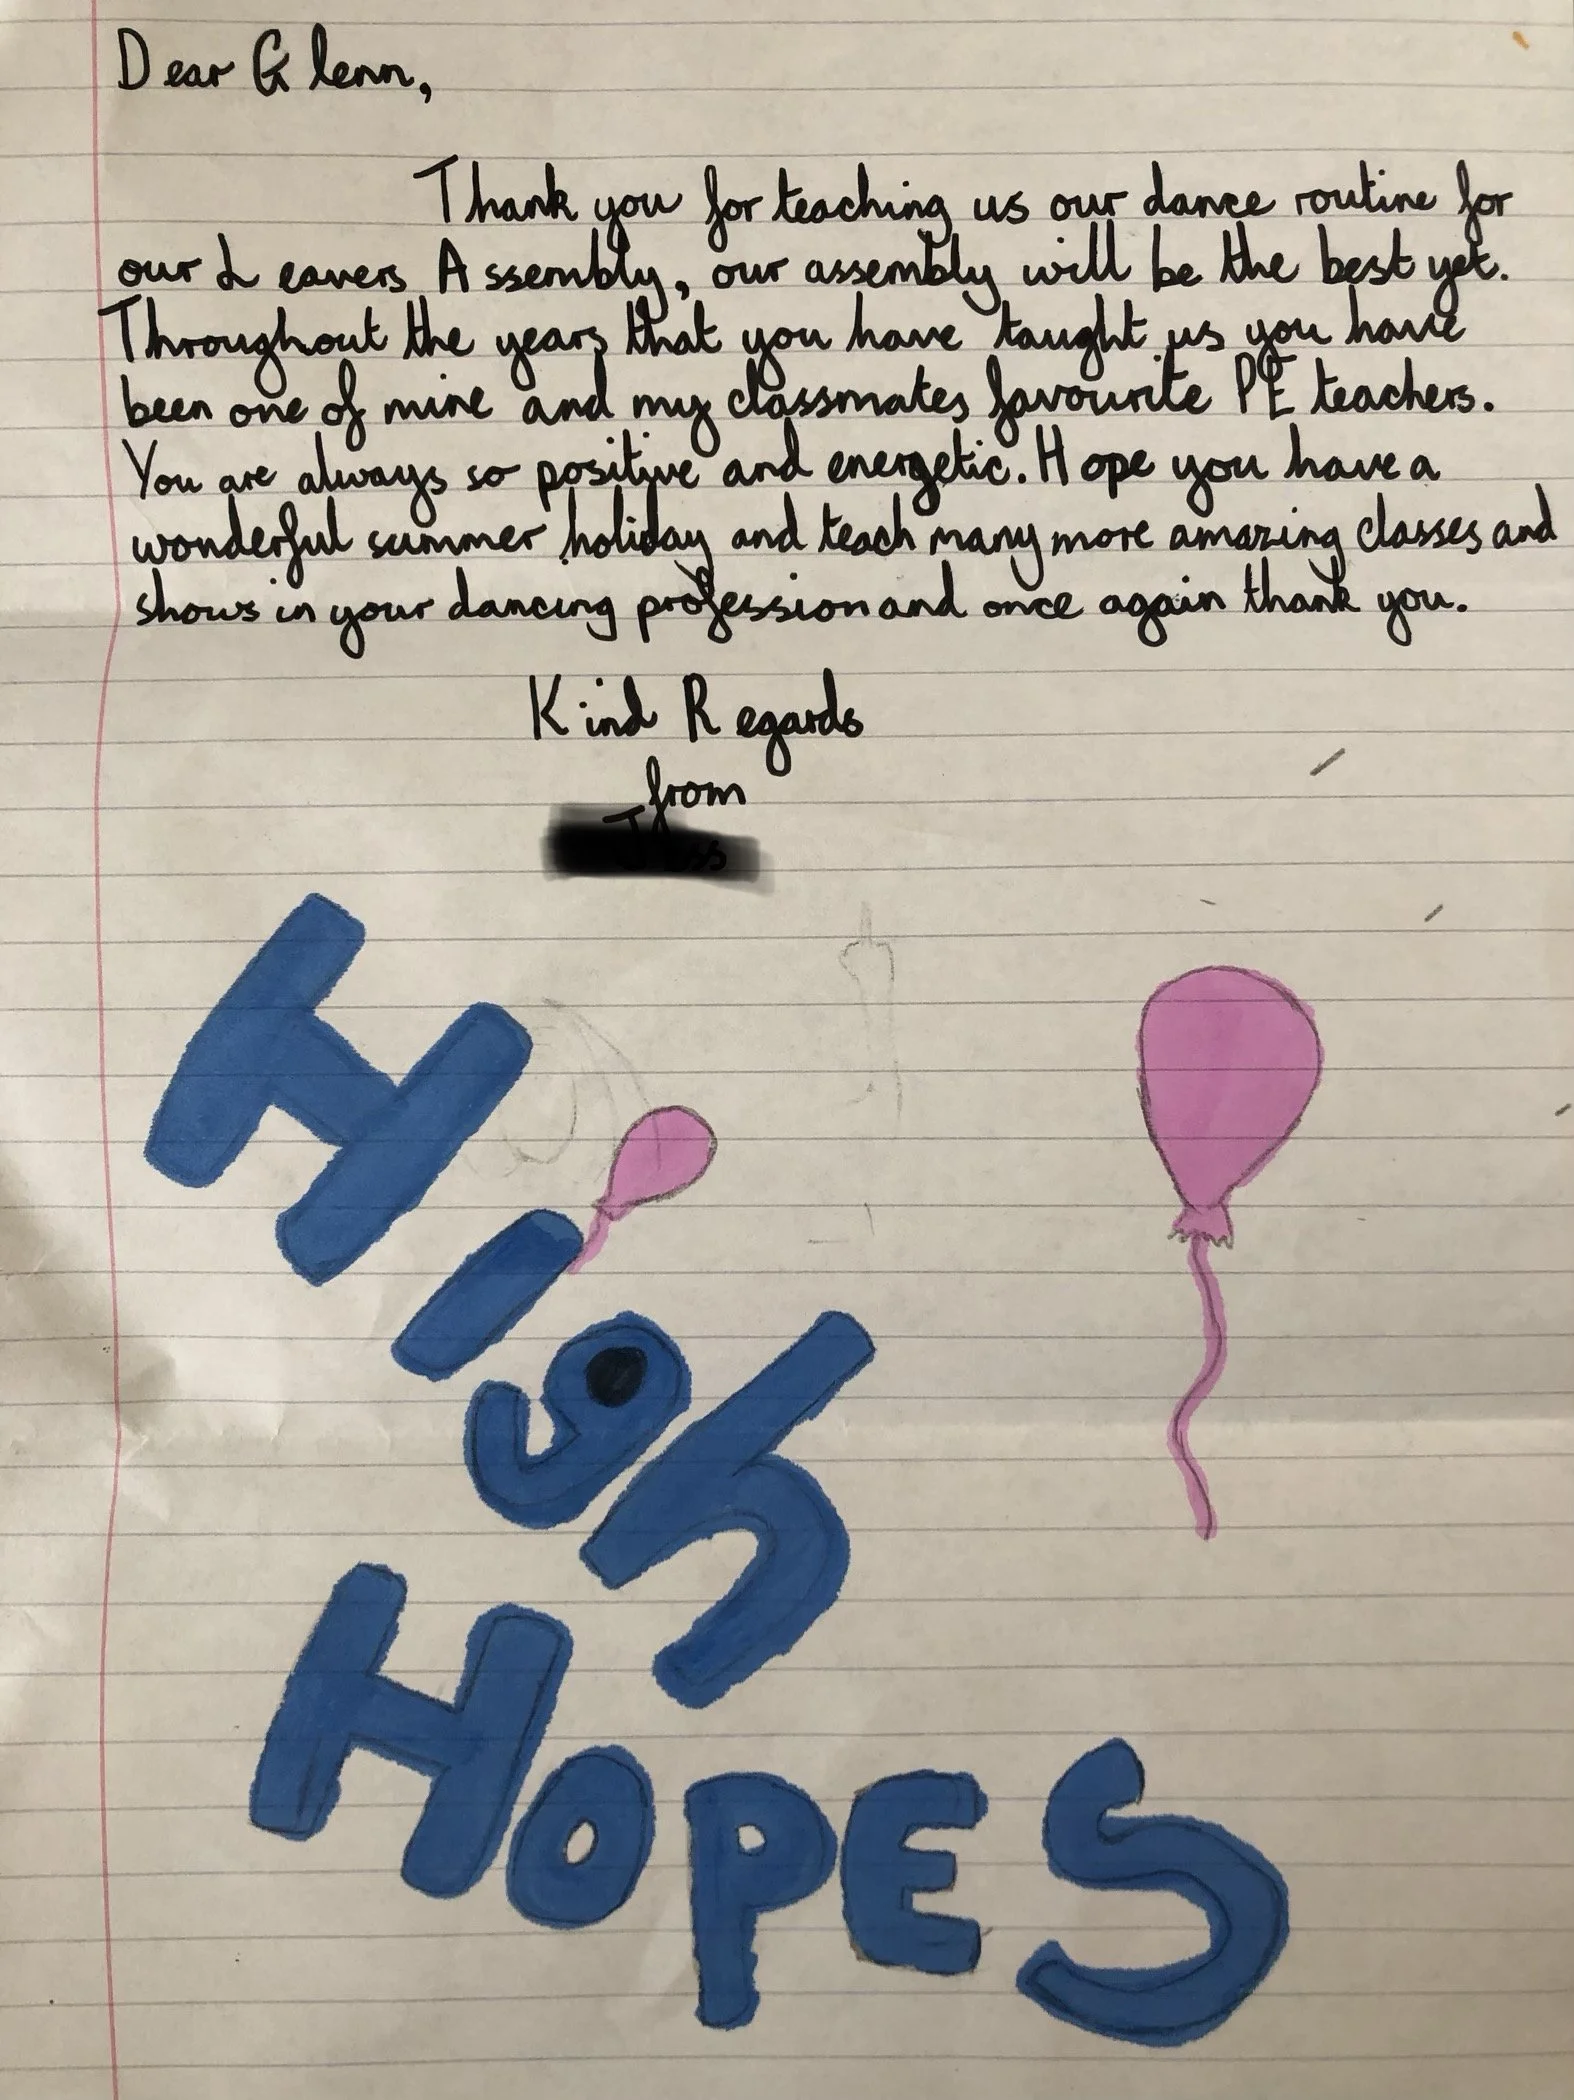 Dear Glenn,
Thank you for teaching us our dance routine for
our Leavers Assembly, our assembly will be the best yet.
Throughout the years that you have taught us you have
been one of mine and my classmates favourite PE teachers.
You are always so positive and energetic. Hope you have a
wonderful summer holiday and teach many more amazing classes and
shows in your dancing profession and once again thank you.
Kind Regards
from
High
HOPES